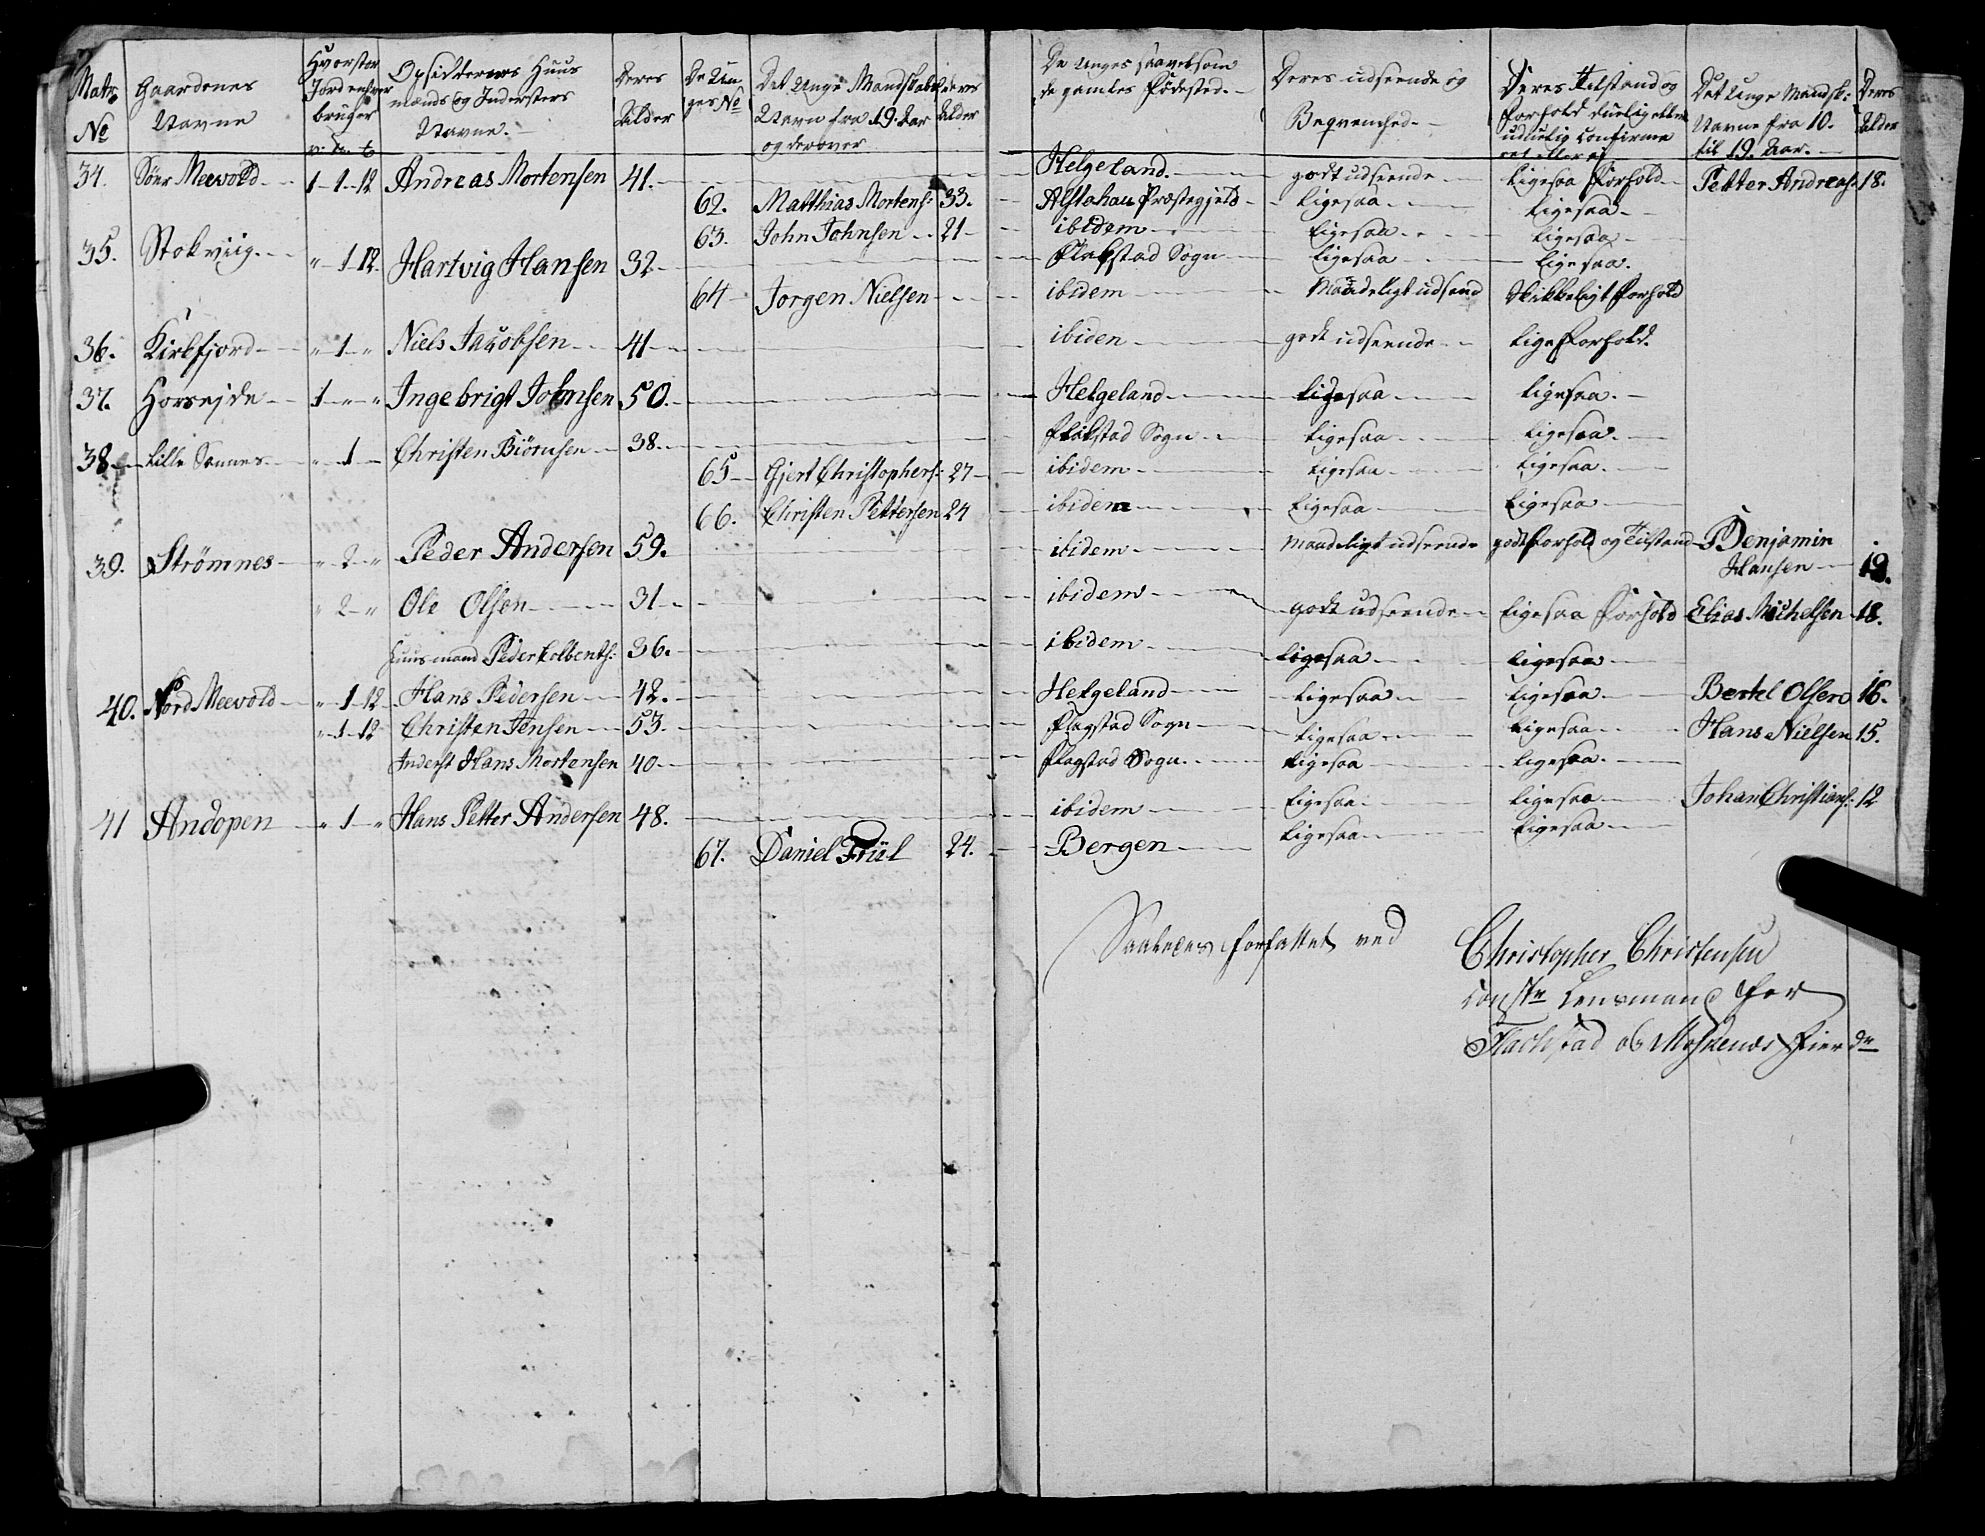 Matr. No
Gaardenes Navne
Hvorstor Jord enhver brüger v. p. t
Opsiddernes Huus mænds og Indersters Navne.
Deres Alder
De Unges No
Det Unge Mandskabs Navn fra 19. Aar og derover
deres Alder
De Unges saavelsom de gamles Fødested.
Deres udseende og Beqvemhed.
Deres Tilstand og Forhold duelig eller uduelig Confirmeret eller ej
Det Unge Mandsk: Navne fra 10. til 19. Aar.
Deres Alder
34. Sönr Meevold 1-1-12 Andreas Mortensen 41. Helgeland. godt udseende ligesaa Forhold Petter Andreas: 18.
62. Matthias Mortens: 33. Alstahau Præstegjeld ligesaa ligesaa
63. John Johnsen 21 ibidem ligesaa ligesaa
35. Stokviig " 1-12 Hartvig Hansen 32 Flagstad Sogn ligesaa ligesaa.
64 Jorgen Nielsen ibidem Maadeligt udseend skikkeligt Forhold
36. Kirkfjord " 1 " Niels Jacobsen 41 ibiden godt udseende lige Forhold.
37. Horsejde 1 " " Ingebrigt Johnsen 50. Helgeland ligesaa ligesaa.
38 Lille Sannes " 1 Christen Biörnsen 38. Flakstad Sogn ligesaa ligesaa.
65 Gjert Christophers: 27 ibidem ligesaa ligesaa.
66. Christen Pettersen 24 ibidem ligesaa ligesaa
39. Strömnes " 2 " Peder Andersen 59. ibidem maadeligt udseende godt Forhold og Tilstand Benjamin Hansen 19.
" 2 " Ole Olsen 31 ibidem godt udseende ligesaa Forhold Elias Michelsen 18.
Huusmand Peder Colbents: 36. ibidem ligesaa ligesaa
40. Nord Meevold " 1-12 Hans Pedersen 42. Helgeland ligesaa ligesaa Bertel Olsen 16.
" 1-12 Christen Jensen 53. Flagstad Sogn ligesaa ligesaa Hans Nielsen 15.
Inderst Hans Mortensen 40 Flagstad Sogn ligesaa ligesaa.
41 Andopen " 1 " Hans Petter Andersen 48. ibidem ligesaa ligesaa Johan Christians: 12
67. Daniel Friil 24. Bergen ligesaa ligesaa
Saaledes forfattet ved Christopher Christensen
Const. Lensmand for
Flachstad og Moskenæs Fierdr